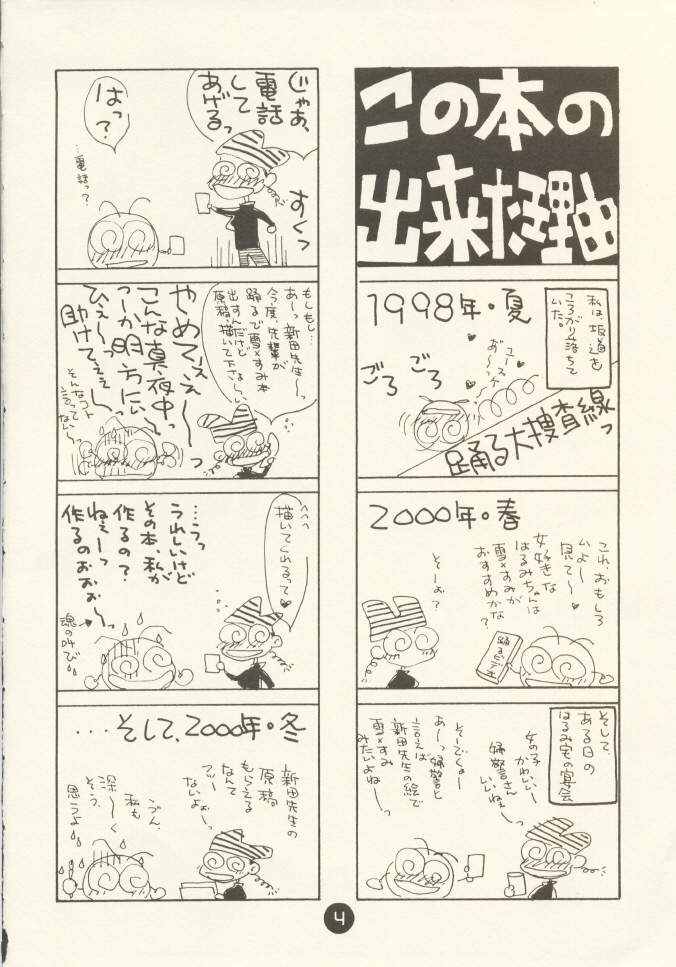 この本の
出来た理由
1998年・夏
私は、坂道を
ころがり落ちて
いた。
ユースケ
あ゛〜っ
ごろ
ごろ
踊る大捜査線っ
2000年・春
これ、おもしろ
いよー
見て〜
女好きな
はるみちゃんは
雪×すみが
おすすめかな?
そーお?
踊るビデオ
そして、
ある日の
はるみ宅の宴会
女の子
かわいいー
婦警さん
いいねぇーっ
そーでくぁー
あーっ婦警と
言えば
新田先生の絵で
雪×すみ
みたいよねーっ
じゃあ、
電話
して
あげるっ
すくっ
はっ?
…電話っ?
もしもし…
あーっ新田先生〜っ
今度、先輩が
踊るで雪×すみ本
出すんだけど
原稿、描いて下さぁ〜い
やめてぇえ〜っ
こんな真夜中っ
つーか明方にぃ〜
ひぇ〜っ
助けてぇぇ〜
そんなコト
言ってない〜っ
へへっ
描いてくれるって
…うっ
うれしいけど
その本、私が
作るの?
ねぇーっ
作るのおぉお〜っ
魂の叫び
…そして、2000年・冬
新田先生の
原稿
もらえる
なんて
ないよぉーっ
うん、
私も
深〜く
そう、
思うよ
4